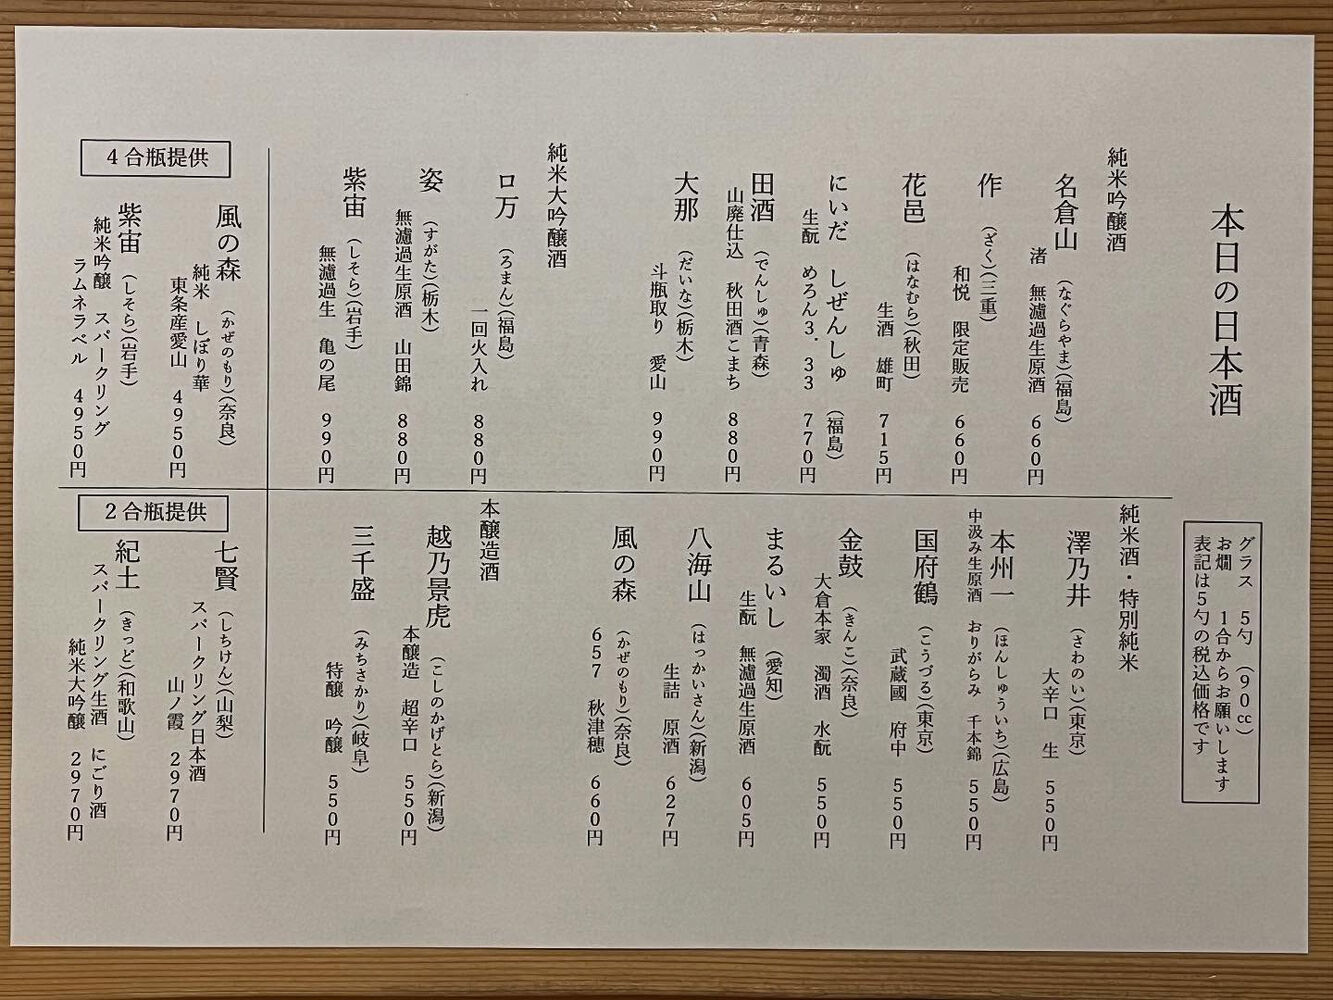 本日の日本酒
グラス 5勺 (90㏄)
お燗 1合からお願いします
表記は5勺の税込価格です
純米吟醸酒
名倉山 (なぐらやま)(福島)
渚 無濾過生原酒 660円
作 (ざく)(三重)
和悦 限定販売 660円
花邑 (はなむら)(秋田)
生酒 雄町 715円
にいだ しぜんしゅ (福島)
生酛 めろん3.33 770円
田酒 (でんしゅ)(青森)
山廃仕込 秋田酒こまち 880円
大那 (だいな)(栃木)
斗瓶取り 愛山 990円
純米大吟醸酒
ロ万 (ろまん)(福島)
一回火入れ 880円
姿 (すがた)(栃木)
無濾過生原酒 山田錦 880円
紫宙 (しそら)(岩手)
無濾過生 亀の尾 990円
純米酒・特別純米
澤乃井 (さわのい)(東京)
大辛口 生 550円
本州一 (ほんしゅういち)(広島)
中汲み生原酒 おりがらみ 千本錦 550円
国府鶴 (こうづる)(東京)
武蔵國 府中 550円
金鼓 (きんこ)(奈良)
大倉本家 濁酒 水酛 550円
まるいし (愛知)
生酛 無濾過生原酒 605円
八海山 (はっかいさん)(新潟)
生詰 原酒 627円
風の森 (かぜのもり)(奈良)
657 秋津穂 660円
本醸造酒
越乃景虎 (こしのかげとら)(新潟)
本醸造 超辛口 550円
三千盛 (みちさかり)(岐阜)
特醸 吟醸 550円
4合瓶提供
風の森 (かぜのもり)(奈良)
純米 しぼり華
東条産愛山 4950円
紫宙 (しそら)(岩手)
純米吟醸 スパークリング
ラムネラベル 4950円
2合瓶提供
七賢 (しちけん)(山梨)
スパークリング日本酒
山ノ霞 2970円
紀土 (きっど)(和歌山)
スパークリング生酒 にごり酒
純米大吟醸 2970円